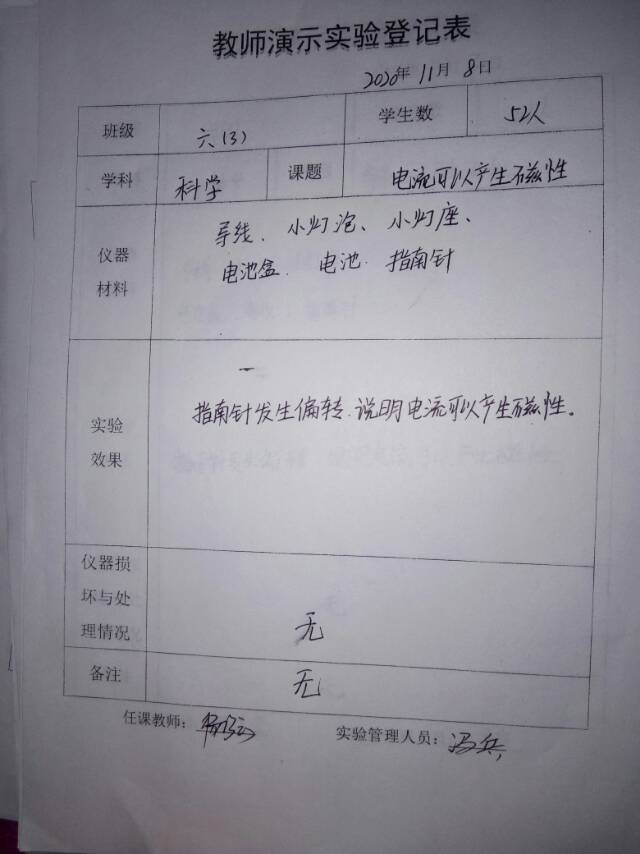 教师演示实验登记表
2020年 11月 8日
班级 六(3) 学生数 52人
学科 科学 课题 电流可以产生磁性
仪器
材料
导线、小灯泡、小灯座、
电池盒、电池、指南针
实验
效果
指南针发生偏转.说明电流可以产生磁性。
仪器损
坏与处
理情况
无
备注 无
任课教师:
实验管理人员: 冯兵